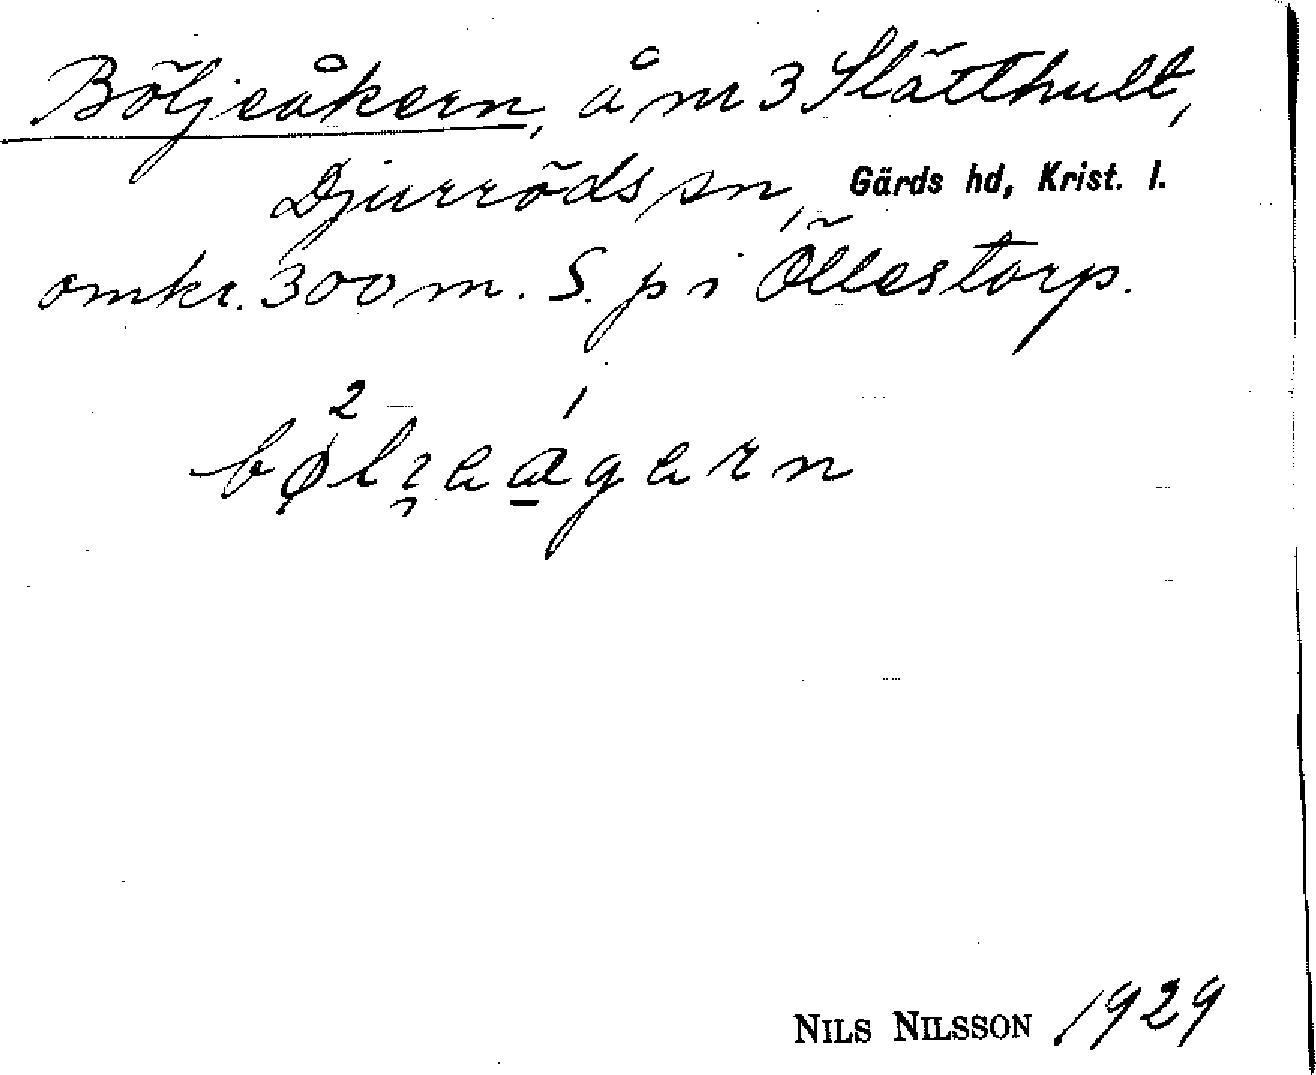 Böljeåkern, å nr 3 Slätthult,
Djurröds sn, Gärds hd, Krist. l.
omkr. 300 m. S. p i Öllestorp.
2 /
bølɪ̯eagern
NILS NILSSON 1929